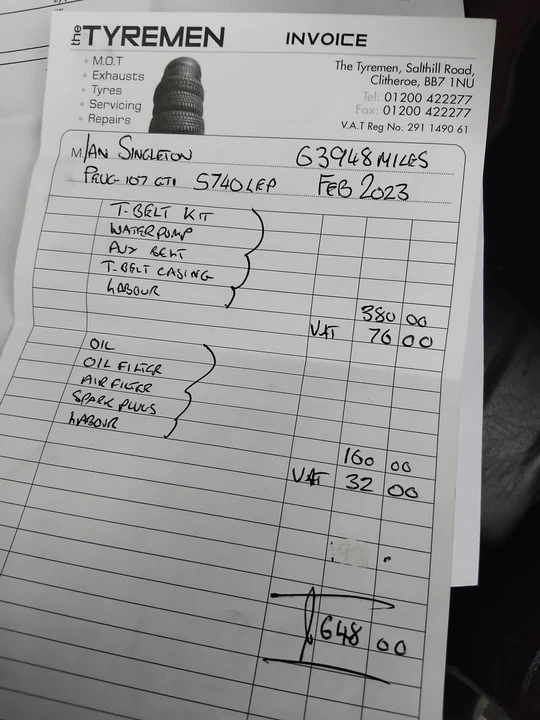 the TYREMEN INVOICE
• M.O.T
• Exhausts
• Tyres
• Servicing
• Repairs
The Tyremen, Salthill Road,
Clitheroe, BB7 1NU
Tel: 01200 422277
Fax: 01200 422277
V.A.T Reg No. 291 1490 61
M/ IAN SINGLETON 63948 MILES
PEUG-107 GTI S740LEP FEB 2023
T-BELT KIT
WATERPUMP
AUX BELT
T-BELT CASING
LABOUR
380 00
VAT 76 00
OIL
OIL FILTER
AIR FILTER
SPARK PLUGS
LABOUR
160 00
VAT 32 00
£648 00